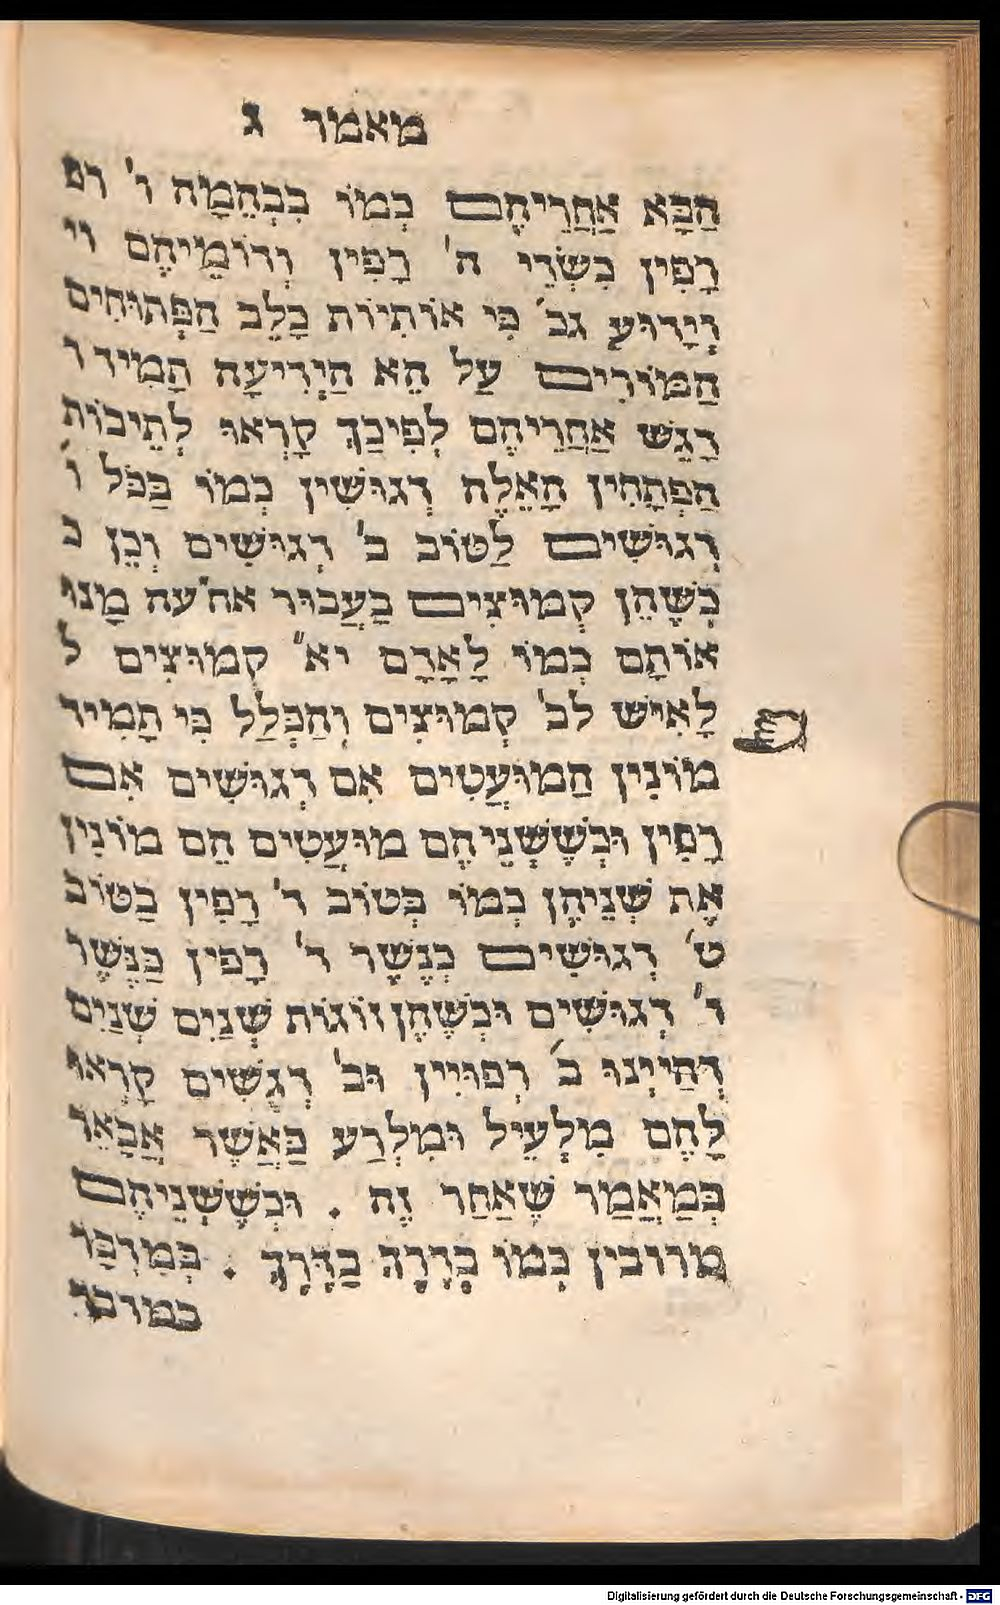 מאמר ג
הַבָּא אַחֲרֵיהֶם כְּמוֹ בִּבְהֵמָה ו' רפ
רָפִין כִּשְׂדֵי ה' רָפִין וְדוֹמֵיהֶם וי
וְיָדוּעַ גכ' כִּי אוֹתִיּוֹת כָלֵב הַפְּתוּחִים
הַמּוֹרִים עַל הֵא הַיְדִיעָה תָּמִיד ו
דָגֵשׁ אַחֲרֵיהֶם לְפִיכָךְ קָרְאוּ לְתֵיבוֹת
הַפְּתָחִין הָאֵלֶּה דְגוּשִׁין כְּמוֹ בַּכֹּל ו'
דְגוּשִׁים לַטּוֹב כ' דְגוּשִׁים וְכֵן כ
כְּשֶׁהֵן קְמוּצִים בַּעֲבוּר אח"עה מָנוּ
אוֹתָם כְּמוֹ לָאָדָם יא" קְמוּצִים ל
לָאִישׁ לב' קְמוּצִים וְהַכְּלַל כִּי תָּמִיד
מוֹנִין הַמּוּעָטִים אִם דְגוּשִׁים אִם
רָפִין וּכְשֶׁשְּׁנֵיהֶם מוּעָטִים הֵם מוֹנִין
אֶת שְׁנֵיהֶן כְּמוֹ בְּטוֹב ד' רָפִין בַּטּוֹב
ט' דְגוּשִׁים כְנֶשֶׁר ד' רָפִין כַּנֶּשֶׁר
ד' דְגוּשִׁים וּכְשֶׁהֶן זוֹגוֹת שְׁנַיִם שְׁנַיִם
דְּהַיְינוּ ב' רְפוּיִין וּב' דְגֻשִׁים קָרְאוּ
לָהֶם מִלְעֵיל וּמִלְרַע כַּאֲשֶׁר אֲבָאֵר
בְּמַאֲמַר שֶׁאַחַר זֶה . וּכְשֶׁשְּׁנֵיהֶם
מרובין כְמוֹ בְּדֶרֶךְ בַּדֶּרֶךְ . בְּמִדְבָּר
במדבר
Digitalisierung gefördert durch die Deutsche Forschungsgemeinschaft - DFG